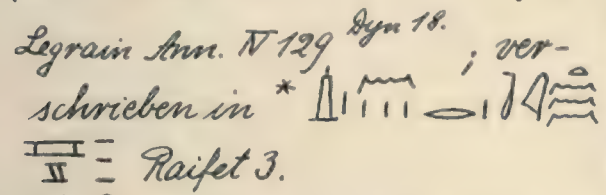 Legrain Ann. IV 129 Dyn 18. ; ver-
schrieben in *
Raifet 3.